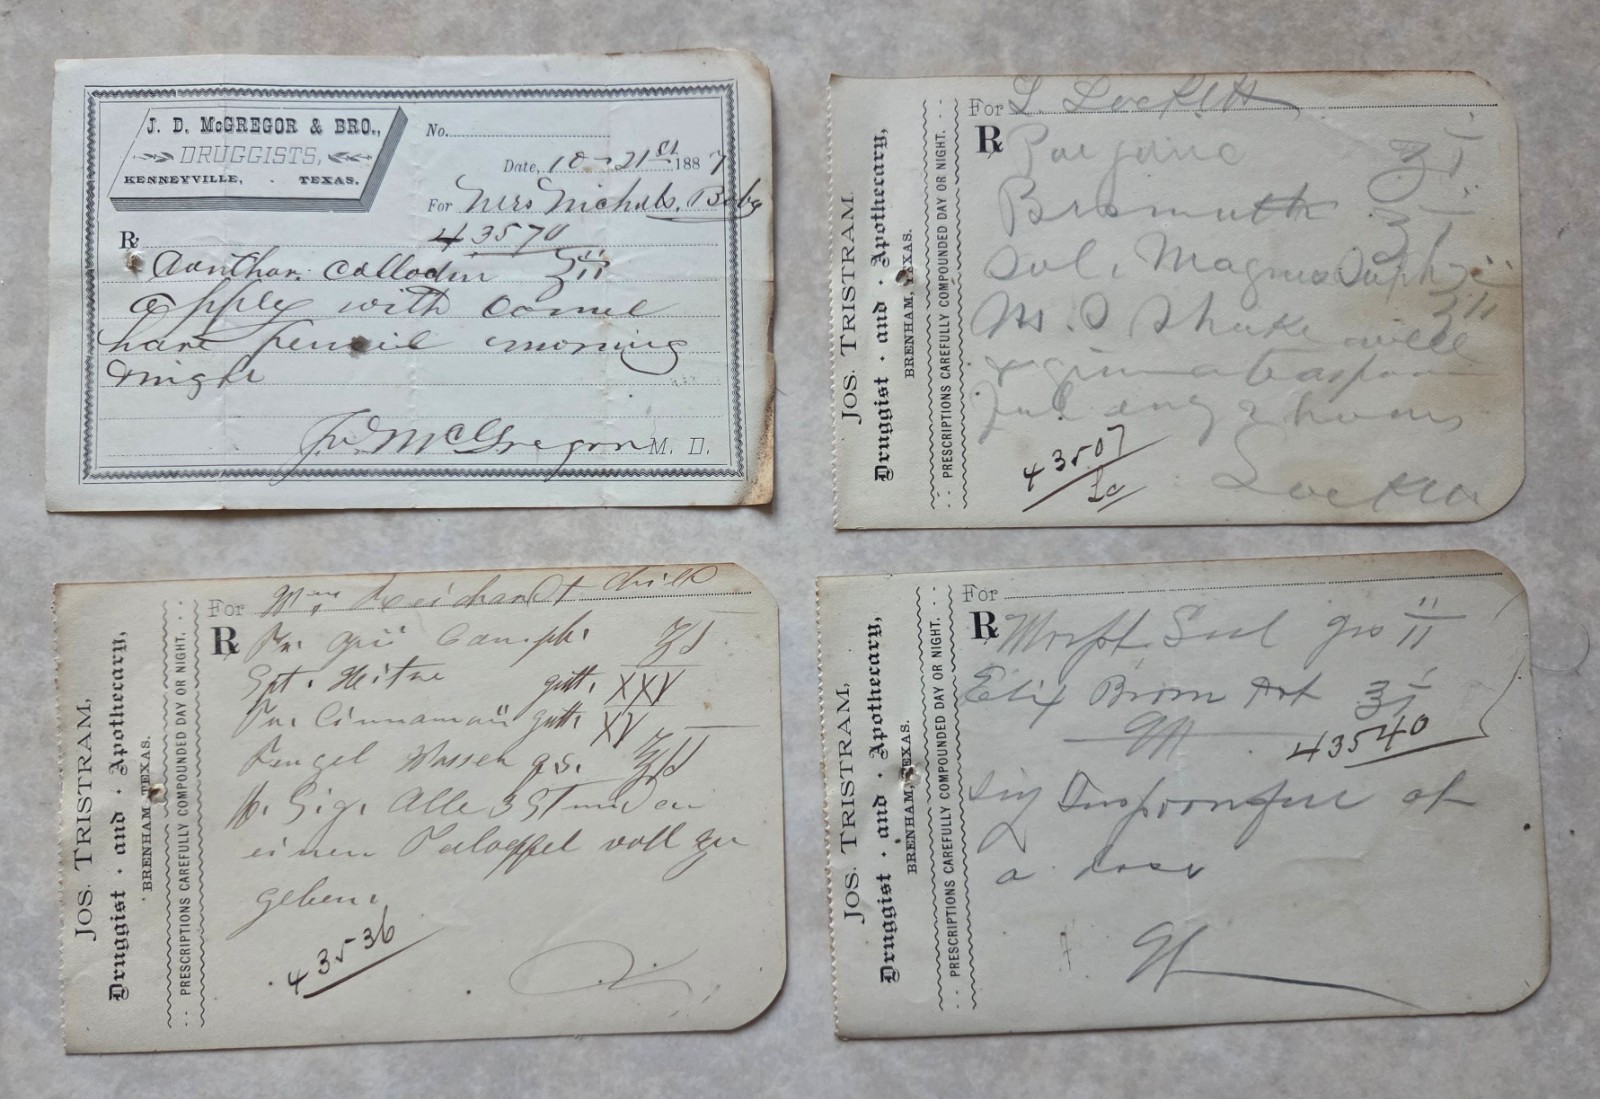 J. D. McGREGOR & BRO.,
DRUGGISTS,
KENNEYVILLE, TEXAS.
No.
Date, 10-21st 1887
For Mrs Nichols, Baby
43570
Rx
Canthar. Collodin ʒii
apply with camel
hare pencil morning
& night
McGregor M. D.
JOS. TRISTRAM,
Druggist and Apothecary,
BRENHAM, TEXAS.
PRESCRIPTIONS CAREFULLY COMPOUNDED DAY OR NIGHT.
For L. Lockett
Rx
Bismuth ʒi
Sol. Magnes Sulph
ʒii
M. S Shake well
& give a teaspoon
ful evry 2 hours
43507
Lockett
JOS. TRISTRAM,
Druggist and Apothecary,
BRENHAM, TEXAS.
PRESCRIPTIONS CAREFULLY COMPOUNDED DAY OR NIGHT.
For Reichardt child
Rx
Tr. Opii Camph.
Spt. Nitre gutt. XXV
Tr. Cinnamon gutt. XV
Fengel Wasser q.s.
M. Sig. Alle 3 Stunden
einen Teeloeffel voll zu
geben.
43536
JOS. TRISTRAM,
Druggist and Apothecary,
BRENHAM, TEXAS.
PRESCRIPTIONS CAREFULLY COMPOUNDED DAY OR NIGHT.
For
Rx
Morph. Sul grs ii
Elix Brom Pot ʒi
M
43540
Sig Teaspoonful at
a dose